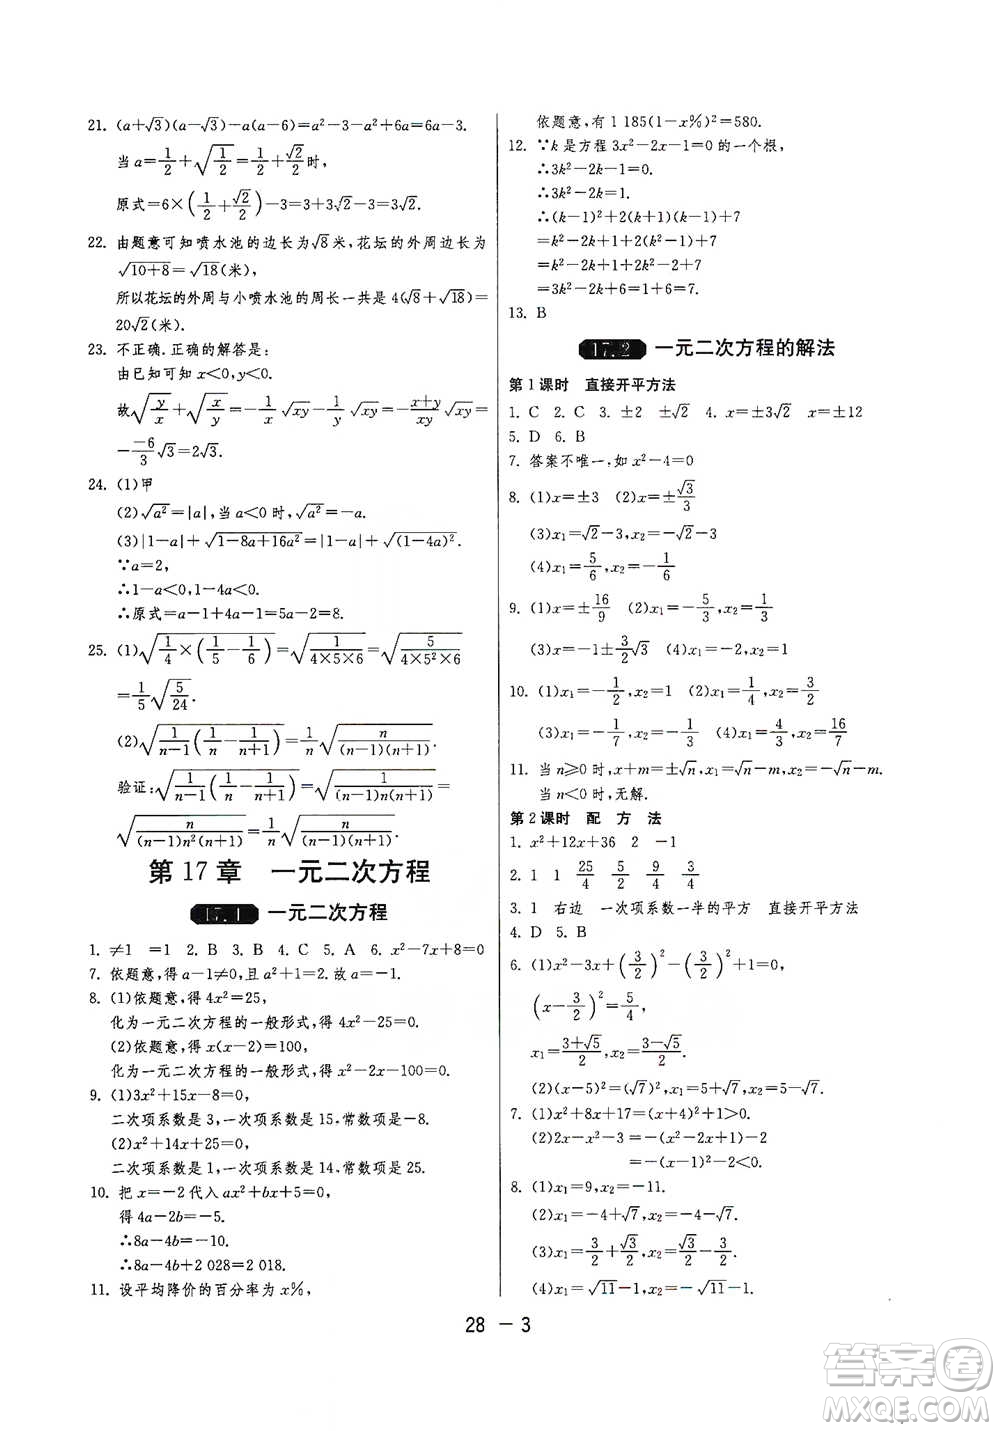 21. (a+√3)(a-√3)-a(a-6)=a²-3-a²+6a=6a-3.
当 a=1/2+√(1/2)=1/2+√2/2时,
原式=6×(1/2+√2/2)-3=3+3√2-3=3√2.
22. 由题意可知喷水池的边长为√8米,花坛的外周边长为
√(10+8)=√18(米),
所以花坛的外周与小喷水池的周长一共是 4(√8+√18)=
20√2(米).
23. 不正确.正确的解答是:
由已知可知 x<0,y<0,
故√(y/x)+√(x/y)=-1/x √xy-1/y √xy=-(x+y)/xy √xy=
-(-6)/3 √3=2√3.
24. (1)甲
(2)√a²=|a|,当 a<0 时,√a²=-a.
(3)|1-a|+√(1-8a+16a²)=|1-a|+√(1-4a)².
∵a=2,
∴1-a<0,1-4a<0.
∴原式=a-1+4a-1=5a-2=8.
25. (1)√(1/4×(1/5-1/6))=√(1/(4×5×6))=√(5/(4×5²×6))
=1/5 √(5/24).
(2)√(1/(n-1)(1/n-1/(n+1)))=1/n √(n/((n-1)(n+1)))
验证:√(1/(n-1)(1/n-1/(n+1)))=√(1/((n-1)n(n+1)))=
√(n/((n-1)n²(n+1)))=1/n √(n/((n-1)(n+1))).
第 17 章 一元二次方程
17.1 一元二次方程
1. ≠1 =1 2. B 3. B 4. C 5. A 6. x²-7x+8=0
7. 依题意,得 a-1≠0,且 a²+1=2.故 a=-1.
8. (1)依题意,得 4x²=25,
化为一元二次方程的一般形式,得 4x²-25=0.
(2)依题意,得 x(x-2)=100,
化为一元二次方程的一般形式,得 x²-2x-100=0.
9. (1)3x²+15x-8=0.
二次项系数是 3,一次项系数是 15,常数项是-8.
(2)x²+14x+25=0.
二次项系数是 1,一次项系数是 14,常数项是 25.
10. 把 x=-2 代入 ax²+bx+5=0,
得 4a-2b=-5.
∴8a-4b=-10.
∴8a-4b+2 028=2 018.
11. 设平均降价的百分率为 x%,
依题意,有 1 185(1-x%)²=580.
12. ∵k是方程 3x²-2x-1=0 的一个根,
∴3k²-2k-1=0.
∴3k²-2k=1.
∴(k-1)²+2(k+1)(k-1)+7
=k²-2k+1+2(k²-1)+7
=k²-2k+1+2k²-2+7
=3k²-2k+6=1+6=7.
13. B
17.2 一元二次方程的解法
第 1 课时 直接开平方法
1. C 2. C 3. ±2 ±√2 4. x=±3√2 x=±12
5. D 6. B
7. 答案不唯一,如 x²-4=0
8. (1)x=±3 (2)x=±√3/3
(3)x₁=√2-3,x₂=-√2-3
(4)x₁=5/6,x₂=-1/6
9. (1)x=±16/9 (2)x₁=-5/3,x₂=1/3
(3)x=-1±3/2√3 (4)x₁=-2,x₂=1
10. (1)x₁=-1/2,x₂=1 (2)x₁=1/4,x₂=3/2
(3)x₁=-1/7,x₂=-1/3 (4)x₁=4/3,x₂=16/7
11. 当 n≥0 时,x+m=±√n,x₁=√n-m,x₂=-√n-m.
当 n<0 时,无解.
第 2 课时 配 方 法
1. x²+12x+36 2 -1
2. 1 1 25/4 5/2 9/4 3/2
3. 1 右边 一次项系数一半的平方 直接开平方法
4. D 5. B
6. (1)x²-3x+(3/2)²-(3/2)²+1=0,
(x-3/2)²=5/4,
x₁=(3+√5)/2,x₂=(3-√5)/2.
(2)(x-5)²=7,x₁=5+√7,x₂=5-√7.
7. (1)x²+8x+17=(x+4)²+1>0.
(2)2x-x²-3=-(x²-2x+1)-2
=-(x-1)²-2<0.
8. (1)x₁=9,x₂=-11.
(2)x₁=-4+√7,x₂=-4-√7.
(3)x₁=3/2+√3/2,x₂=3/2-√3/2.
(4)x₁=√11-1,x₂=-√11-1.
28 - 3
答案圈
MXQE.COM